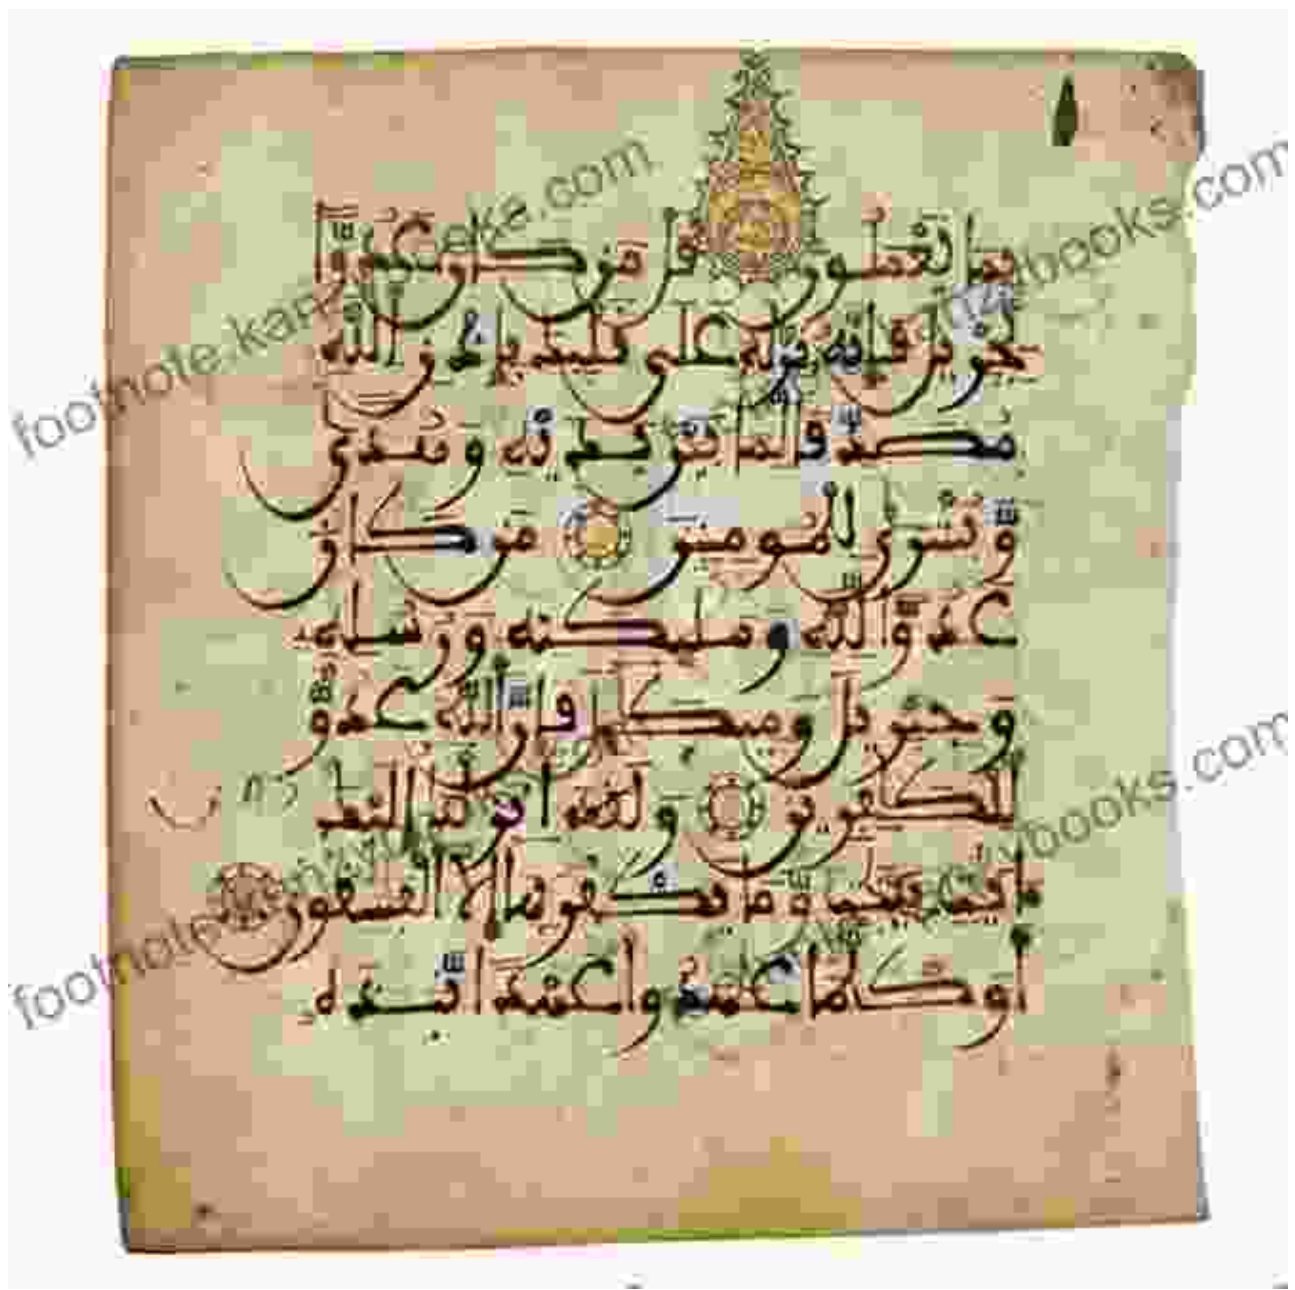 بما يعملون قل من كان عدوا
لجبريل فإنه نزله على قلبك بإذن الله
مصدقا لما بين يديه وهدى
وبشرى للمومنين من كان
عدوا لله وملئكته ورسله
وجبريل وميكئل فإن الله عدو
للكفرين ولقد انزلنا اليك
ءايت بينت وما يكفر بها إلا الفسقون
أوكلما عهدوا عهدا نبذه